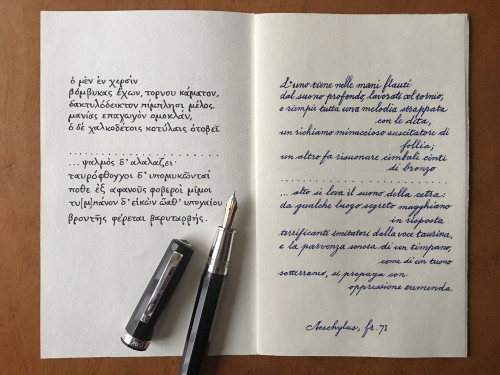 ὁ μὲν ἐν χερσὶν
βόμβυκας ἔχων, τόρνου κάματον,
δακτυλόδεικτον πίμπλησι μέλος,
μανίας ἐπαγωγὸν ὁμοκλάν,
ὁ δὲ χαλκοδέτοις κοτύλαις ὀτοβεῖ
....................
...ψαλμὸς δ' ἀλαλάζει·
ταυρόφθογγοι δ' ὑπομυκῶνται
ποθὲ ἐξ ἀφανοῦς φοβεροὶ μῖμοι
τυ[μ]πάνου δ' εἰκὼν ὥσθ' ὑπογαίου
βροντῆς φέρεται βαρυταρβής.
L'uno tiene nelle mani flauti
dal suono profondo, lavorati col tornio,
e riempie tutta una melodia strappata
con le dita,
un richiamo minaccioso suscitatore di
follia;
un altro fa risuonare cimbali cinti
di bronzo
....................
... alto si leva il suono della cetra:
da qualche luogo segreto mugghiano
in risposta
terrificanti imitatori dalla voce taurina,
e la parvenza sonora di un timpano,
come di un tuono
sotterraneo, si propaga con
oppressione tremenda.
Aeschylus, fr. 71